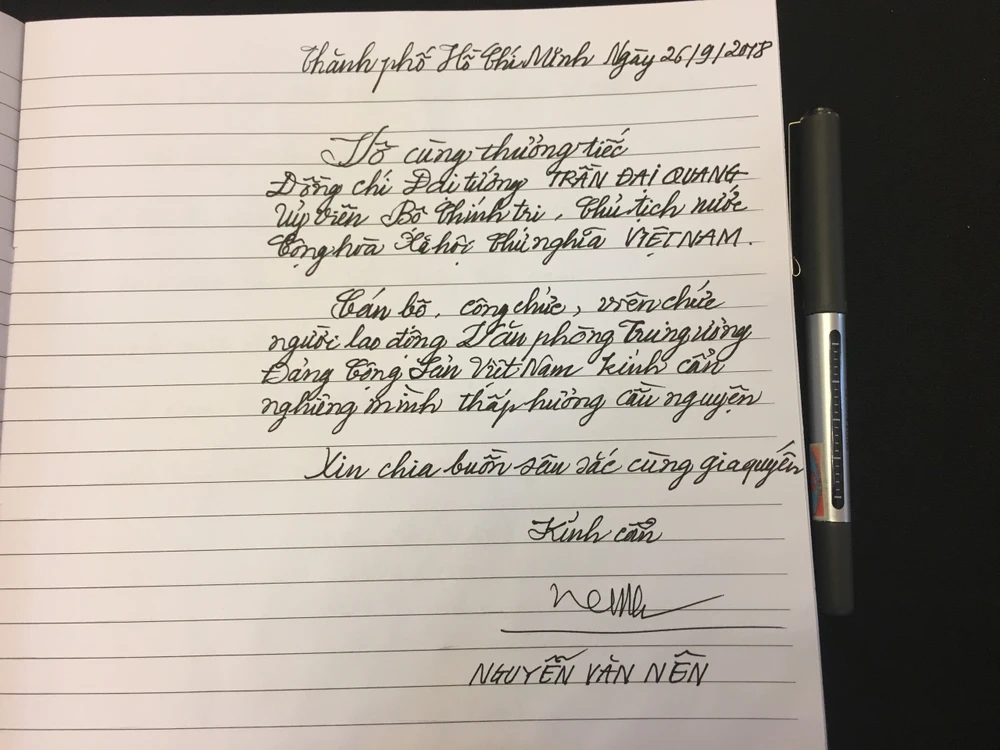 Thành phố Hồ Chí Minh Ngày 26/9/2018
Vô cùng thương tiếc
Đồng chí Đại tướng TRẦN ĐẠI QUANG
Ủy viên Bộ Chính trị, Chủ tịch nước
Cộng hòa Xã hội Chủ nghĩa VIỆT NAM.
Cán bộ, công chức, viên chức
người lao động Văn phòng Trung ương
Đảng Cộng Sản Việt Nam kính cẩn
nghiêng mình thắp hương cầu nguyện
Xin chia buồn sâu sắc cùng gia quyến
Kính cẩn
NGUYỄN VĂN NÊN